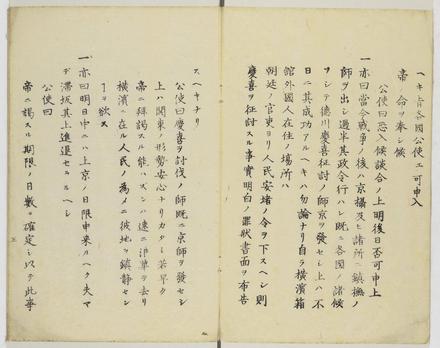 ヘキ旨各國公使エ可申入
帝命ヲ奉シ候
公使曰恐入候談合ノ上明後日否可申上
一亦曰當今戰爭ノ後ハ京攝及ヒ諸所ニ鎮撫ノ
師ヲ出シ過半其政令行ハレ既ニ各國ノ諸候
ヲシテ德川慶喜征討ノ師京ヲ發セシ上ハ不
日ニ其成功アルヘキハ勿論ナリ自ラ橫濱箱
館外國人在住ノ場所ハ
朝廷ノ官吏ヨリ人民安堵ノ令ヲ下スヘシ則
慶喜ヲ征討スル事實明白ノ罪狀書面ヲ布告
スヘキナリ
公使曰慶喜ヲ討伐ノ師既ニ京師ヲ發セシ
上ハ關東ノ形勢安心ナリカタシ若早ク
帝ニ拜謁スル能ハズンハ速ニ
ヲ去リ
橫濱ニ在ル人民ノ爲メニ彼地ヲ鎮靜セン
ヿヲ欲ス
一亦曰明日中ニハ上京ノ日限申來ルヘク夫マ
デ滯坂其上進退セラルヘシ
公使曰
帝ニ謁スル期限ノ日數ヲ確定シ以テ此事